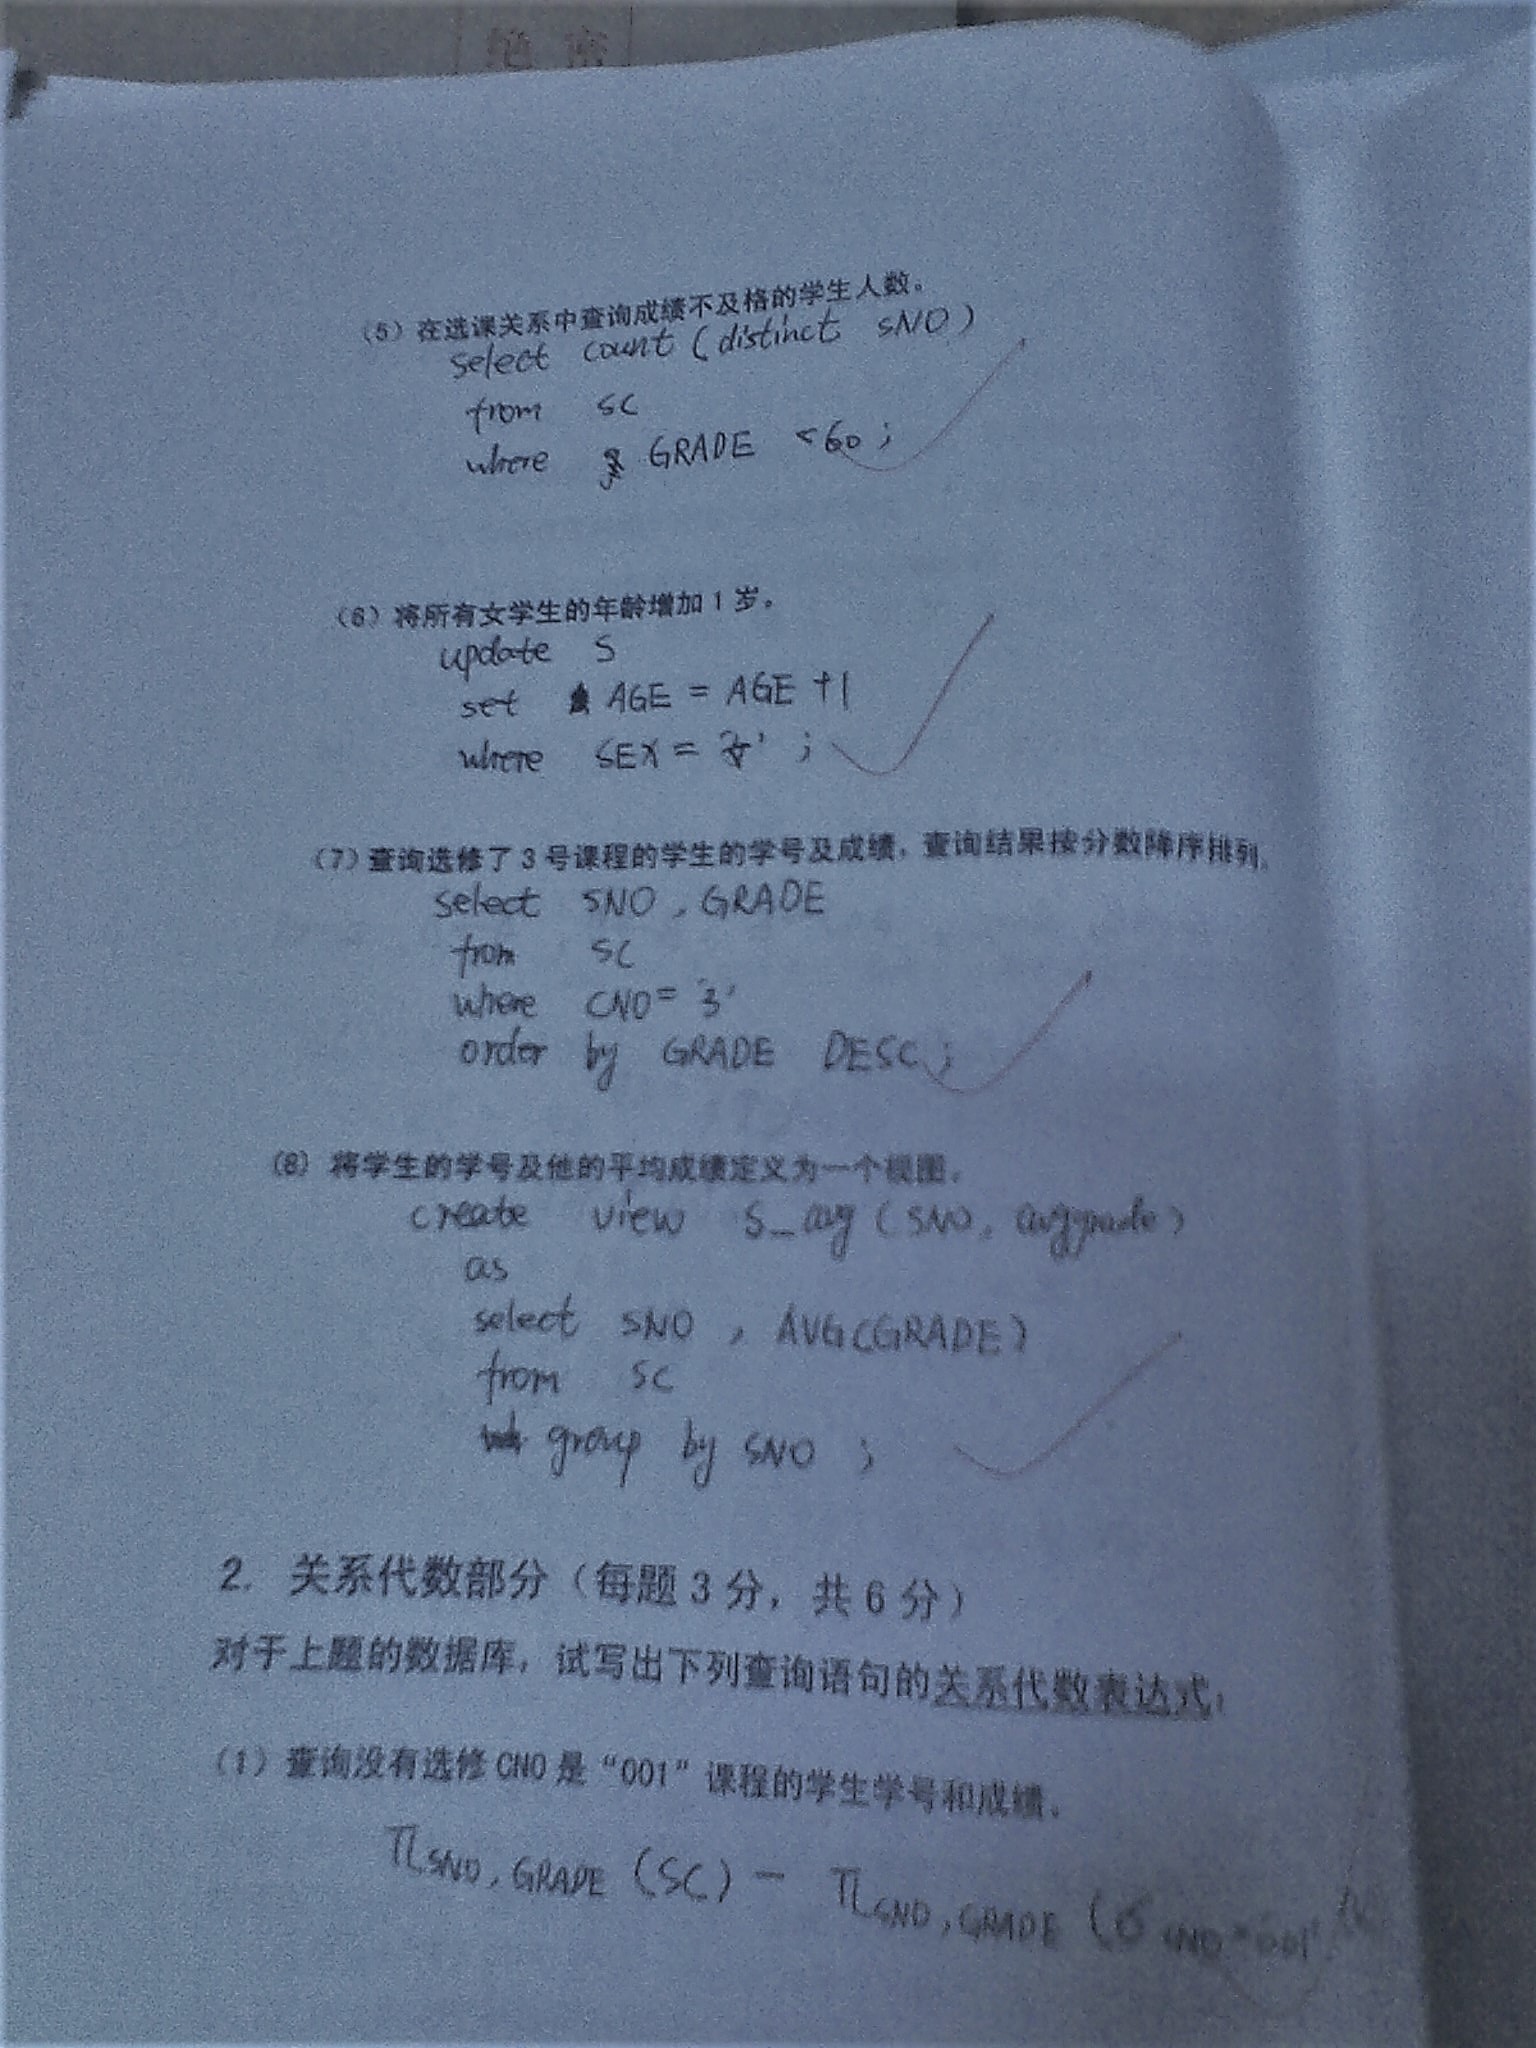 绝 密
(5) 在选课关系中查询成绩不及格的学生人数。
select count (distinct SNO)
from SC
where GRADE <60;
(6) 将所有女学生的年龄增加1岁。
update S
set AGE = AGE +1
where SEX = '女' ;
(7) 查询选修了3号课程的学生的学号及成绩，查询结果按分数降序排列。
select SNO , GRADE
from SC
where CNO= '3'
order by GRADE DESC;
(8) 将学生的学号及他的平均成绩定义为一个视图。
create view S_avg (SNO, avggrade)
as
select SNO , AVG(GRADE)
from SC
group by SNO ;
2. 关系代数部分（每题3分，共6分）
对于上题的数据库，试写出下列查询语句的关系代数表达式：
(1) 查询没有选修CNO是“001”课程的学生学号和成绩。
π SNO, GRADE (SC) - π SNO, GRADE (σ CNO='001'